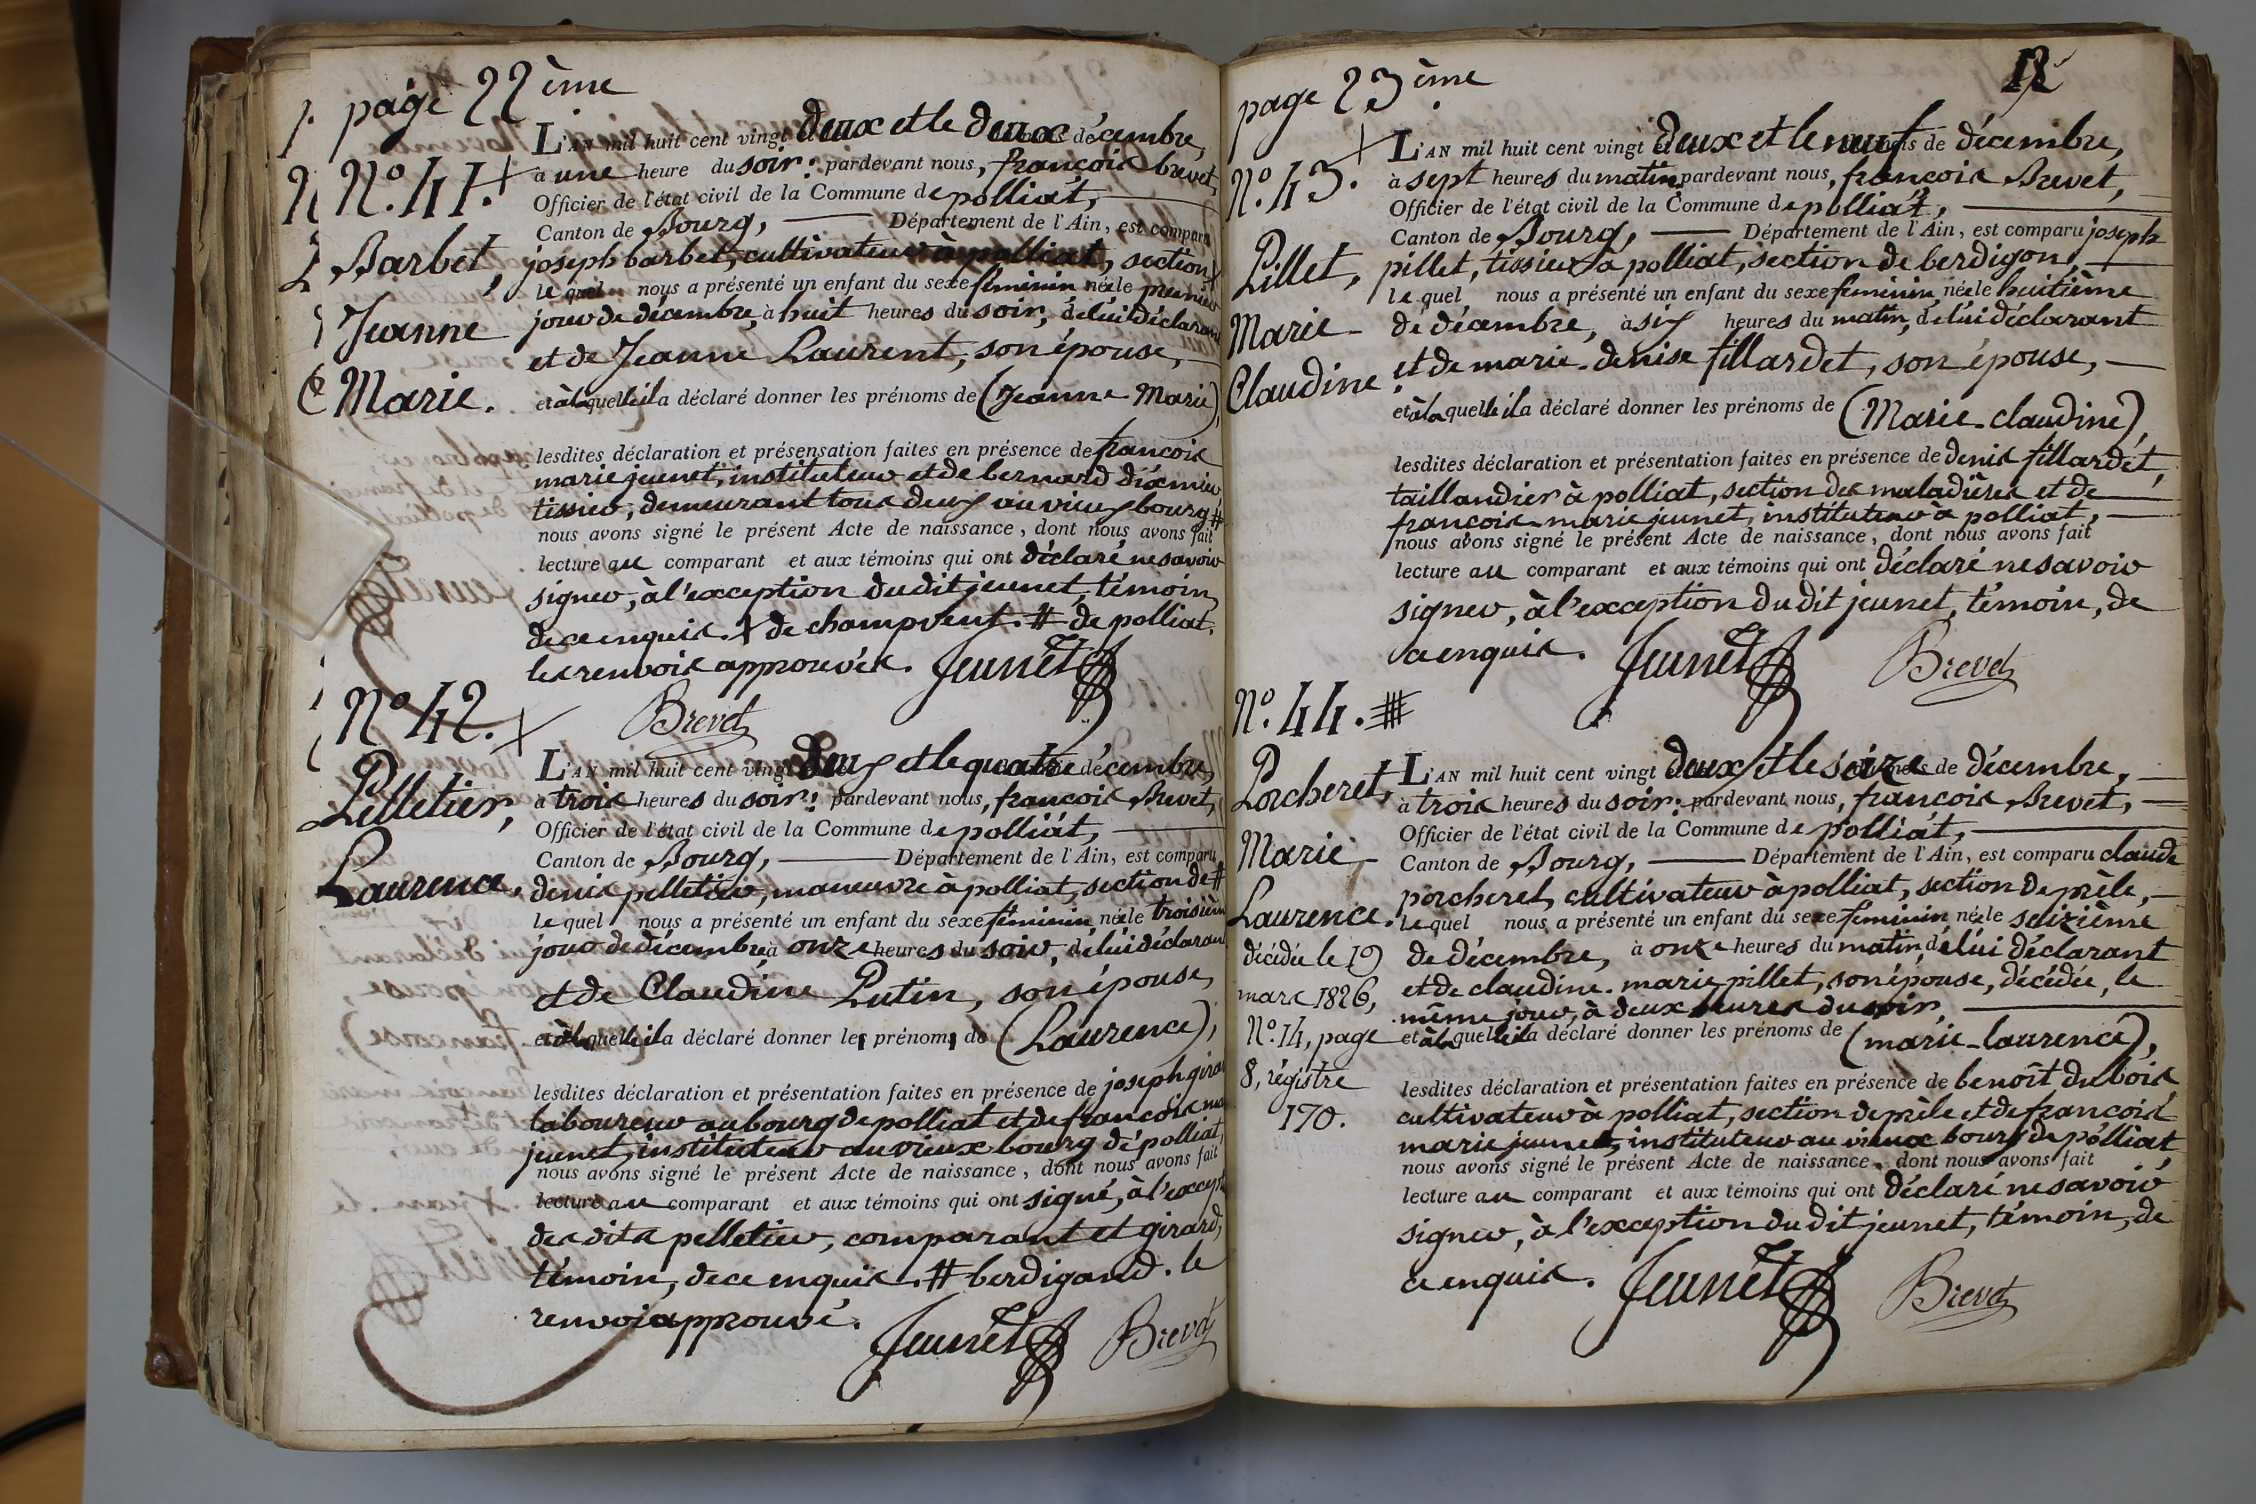 page 22ème
N.° 41. +
Barbet,
Jeanne
Marie.
L'AN mil huit cent vingt deux et le deux décembre,
à une heure du soir: pardevant nous, françois brevet,
Officier de l'état civil de la Commune de polliat,
Canton de Bourg, Département de l'Ain, est comparu
joseph barbet, cultivateur à polliat, section +
lequel nous a présenté un enfant du sexe féminin née le premier
jour de décembre, à huit heures du soir, de lui déclarant
et de Jeanne Laurent, son épouse,
et à laquelle il a déclaré donner les prénoms de (Jeanne Marie),
lesdites déclaration et présensation faites en présence de françois
marie jeunet, instituteur et de bernard
tissier, demeurant tous deux au vieux bourg #
nous avons signé le présent Acte de naissance, dont nous avons fait
lecture au comparant et aux témoins qui ont déclaré ne savoir
signer, à l'exception dudit jeunet, témoin,
de ce enquis. + de champvent. # de polliat.
les renvois approuvés. Jeunet
Brevet
N° 42. +
Pelletier,
Laurence.
L'AN mil huit cent vingt deux et le quatre décembre,
à trois heures du soir: pardevant nous, françois Brevet,
Officier de l'état civil de la Commune de polliat,
Canton de Bourg, Département de l'Ain, est comparu
denis pelletier, maneuvre à polliat, section de #
lequel nous a présenté un enfant du sexe féminin née le troisième
jour de décembre à onze heures du soir, de lui déclarant
et de Claudine Putin, son épouse,
et à laquelle il a déclaré donner les prénoms de (Laurence),
lesdites déclaration et présentation faites en présence de joseph girard
laboureur au bourg de polliat et de françois marie
jeunet, instituteur au vieux bourg de polliat,
nous avons signé le présent Acte de naissance, dont nous avons fait
lecture au comparant et aux témoins qui ont signé, à l'exception
des dits pelletier, comparant et girard,
témoin, de ce enquis. # berdigand. le
renvoi approuvé.
Jeunet Brevet
page 23ème
12
N.° 43. +
Pillet,
Marie
Claudine
L'AN mil huit cent vingt deux et le neuf mois de décembre,
à sept heures du matin pardevant nous, françois Brevet,
Officier de l'état civil de la Commune de polliat,
Canton de Bourg, Département de l'Ain, est comparu joseph
pillet, tissier à polliat, section de berdigon,
lequel nous a présenté un enfant du sexe féminin, née le huitième
de décembre, à six heures du matin, de lui déclarant
et de marie-denise fillardet, son épouse,
et à laquelle il a déclaré donner les prénoms de (Marie-claudine),
lesdites déclaration et présentation faites en présence de denis fillardet,
taillandier à polliat, section des maladières et de
françois-marie jeunet, instituteur à polliat,
nous avons signé le présent Acte de naissance, dont nous avons fait
lecture au comparant et aux témoins qui ont déclaré ne savoir
signer, à l'exception dudit jeunet, témoin, de
ce enquis. Jeunet Brevet
N.° 44. #
Porcheret,
Marie
Laurence.
décédée le 19
mars 1826,
N.° 14, page
8, régistre
170.
L'AN mil huit cent vingt deux et le seize mois de décembre,
à trois heures du soir: pardevant nous, françois Brevet,
Officier de l'état civil de la Commune de polliat,
Canton de Bourg, Département de l'Ain, est comparu claude
porcheret, cultivateur à polliat, section de prèle,
lequel nous a présenté un enfant du sexe féminin née le seizième
de décembre, à onze heures du matin, de lui déclarant
et de claudine-marie pillet, son épouse, décédée, le
même jour, à deux heures du soir,
et à laquelle il a déclaré donner les prénoms de (marie-laurence),
lesdites déclaration et présentation faites en présence de benoît dubois
cultivateur à polliat, section de prèle et de françois
marie jeunet, instituteur au vieux bourg de polliat
nous avons signé le présent Acte de naissance, dont nous avons fait
lecture au comparant et aux témoins qui ont déclaré ne savoir
signer, à l'exception dudit jeunet, témoin, de
ce enquis. Jeunet Brevet